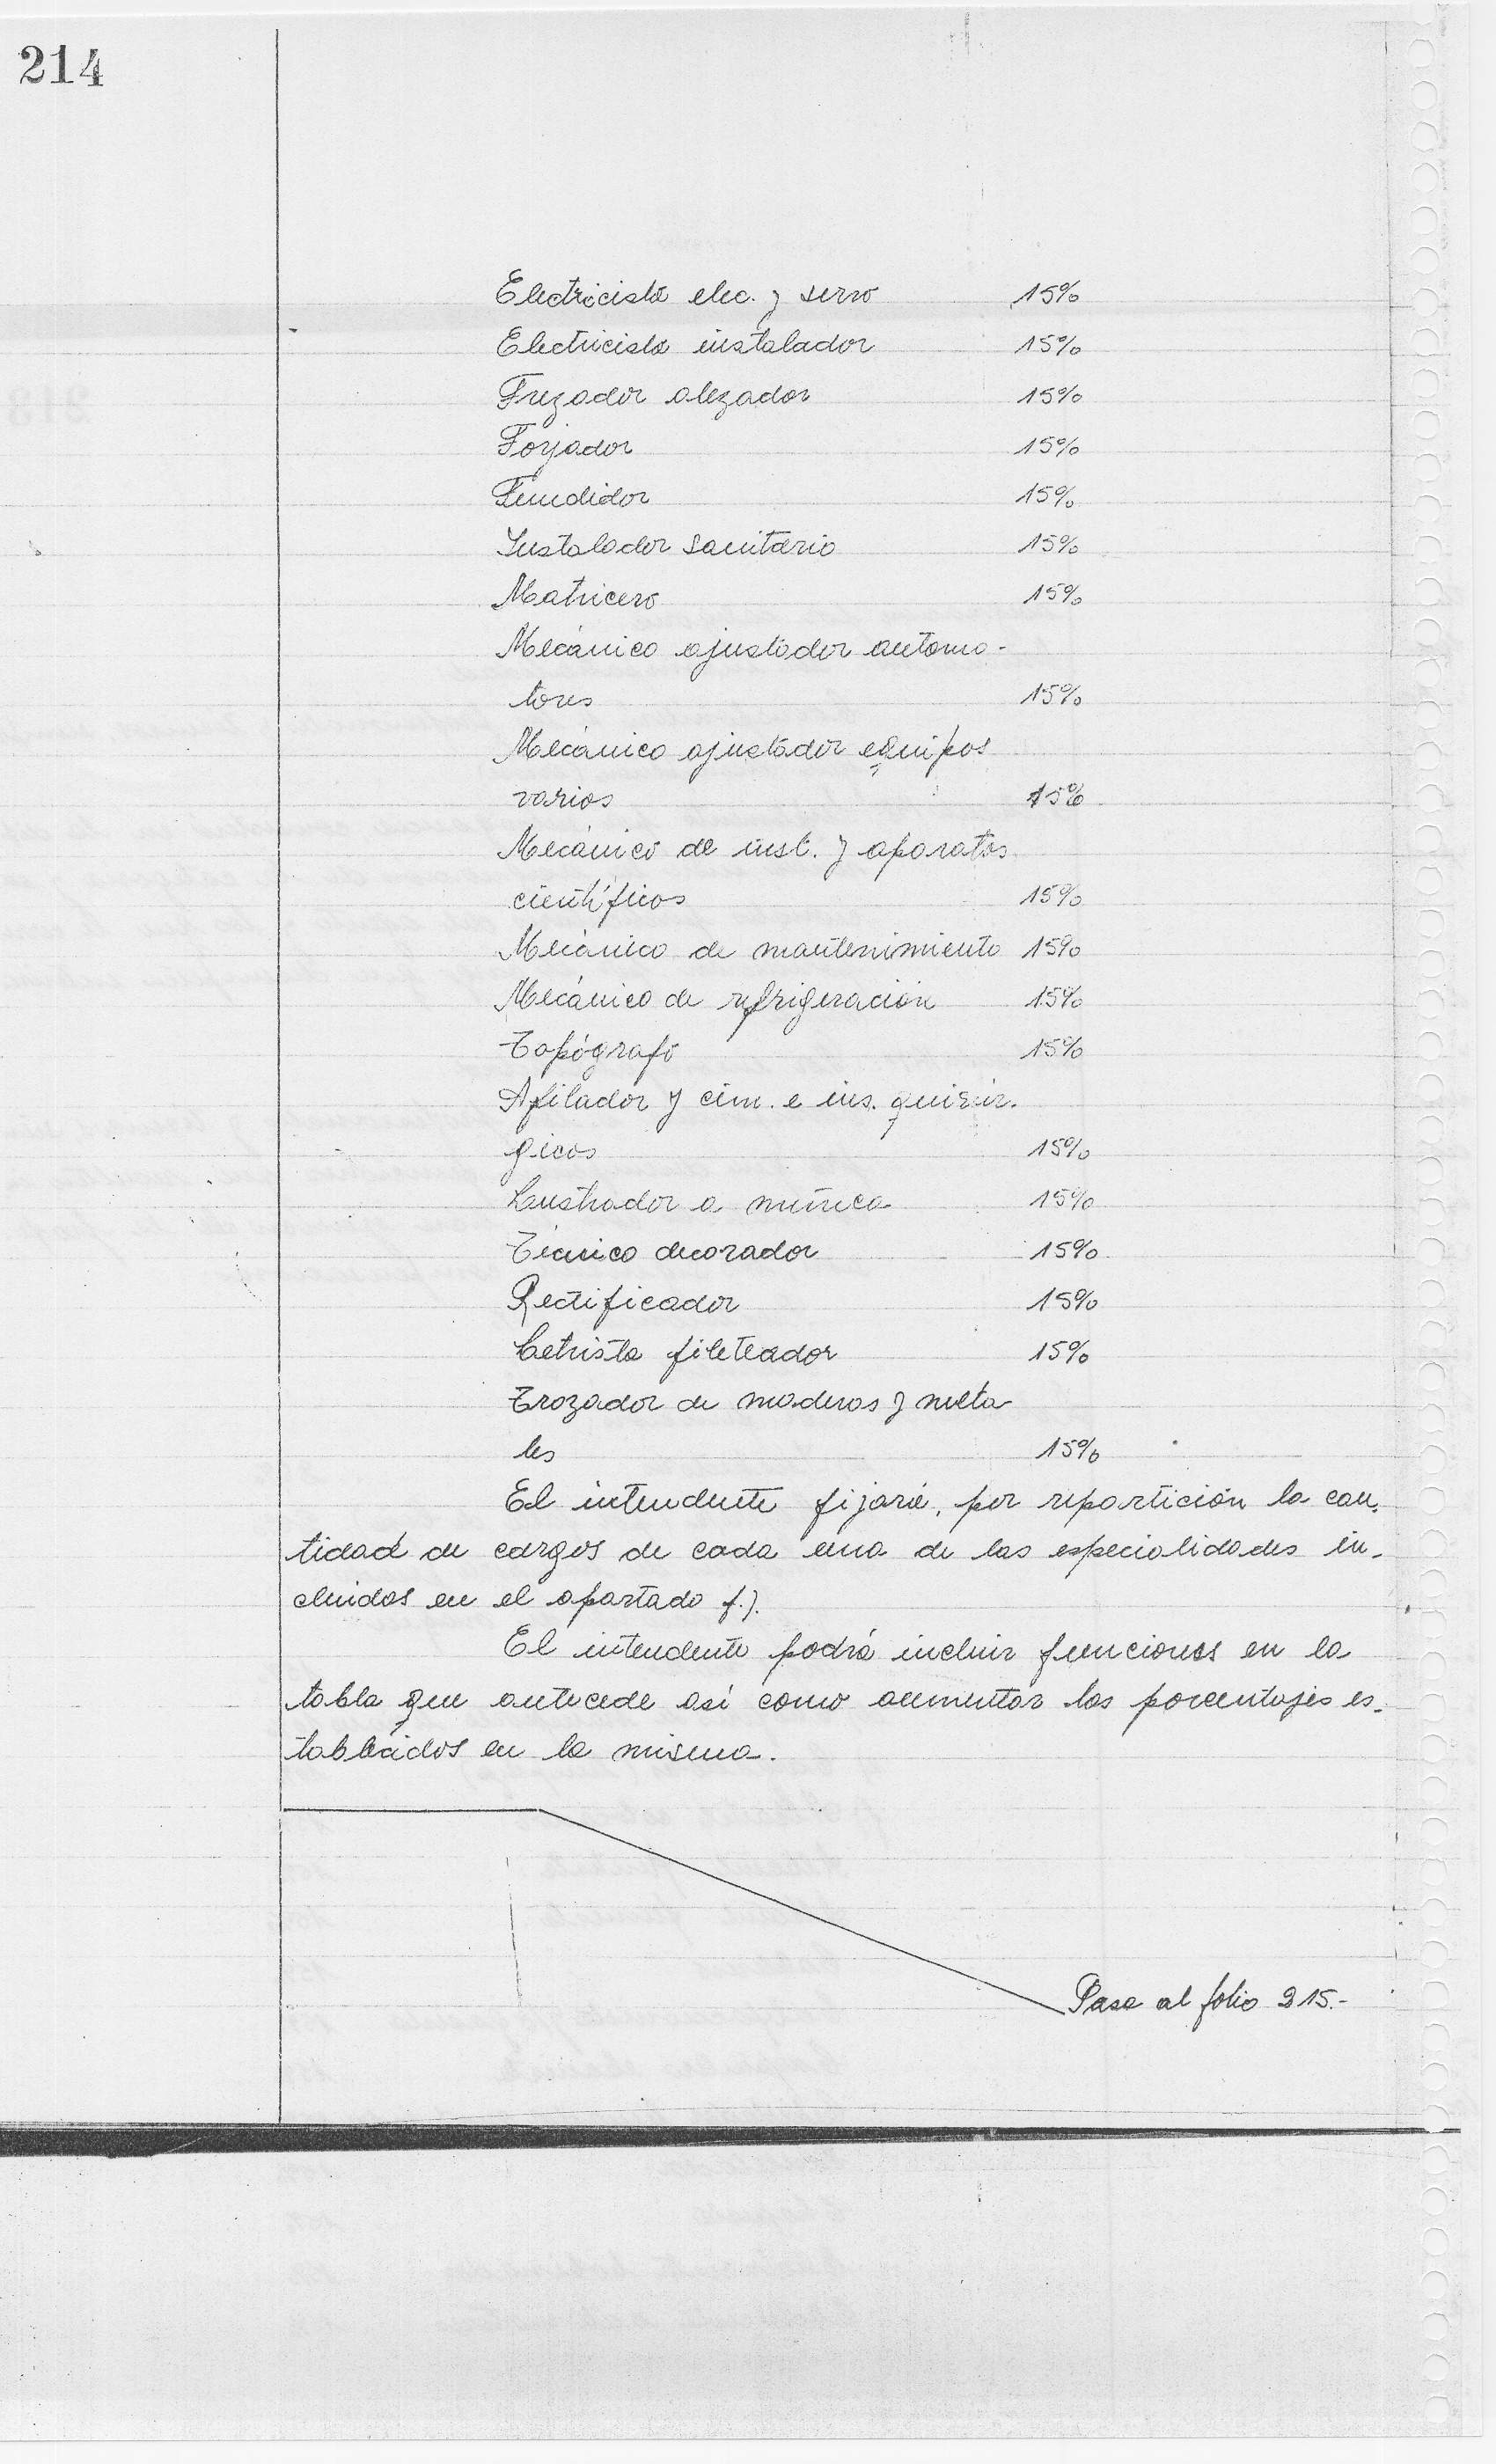 214
Electricista elec. y servo 15%
Electricista instalador 15%
Frezador alezador 15%
Forjador 15%
Fundidor 15%
Instalador sanitario 15%
Matricero 15%
Mecánico ajustador automo-
tores 15%
Mecánico ajustador equipos
varios 15%
Mecánico de inst. y aparatos
científicos 15%
Mecánico de mantenimiento 15%
Mecánico de refrigeración 15%
Topógrafo 15%
Afilador y cim. e ins. quirúr-
gicos 15%
Lustrador a muñeca 15%
Técnico decorador 15%
Rectificador 15%
Letrista fileteador 15%
Trozador de maderas y meta
les 15%
El intendente fijará, por repartición la can-
tidad de cargos de cada una de las especialidades in-
cluidas en el apartado f.).
El intendente podrá incluir funciones en la
tabla que antecede así como aumentar los porcentajes es-
tablecidos en la misma.
Pasa al folio 215.-